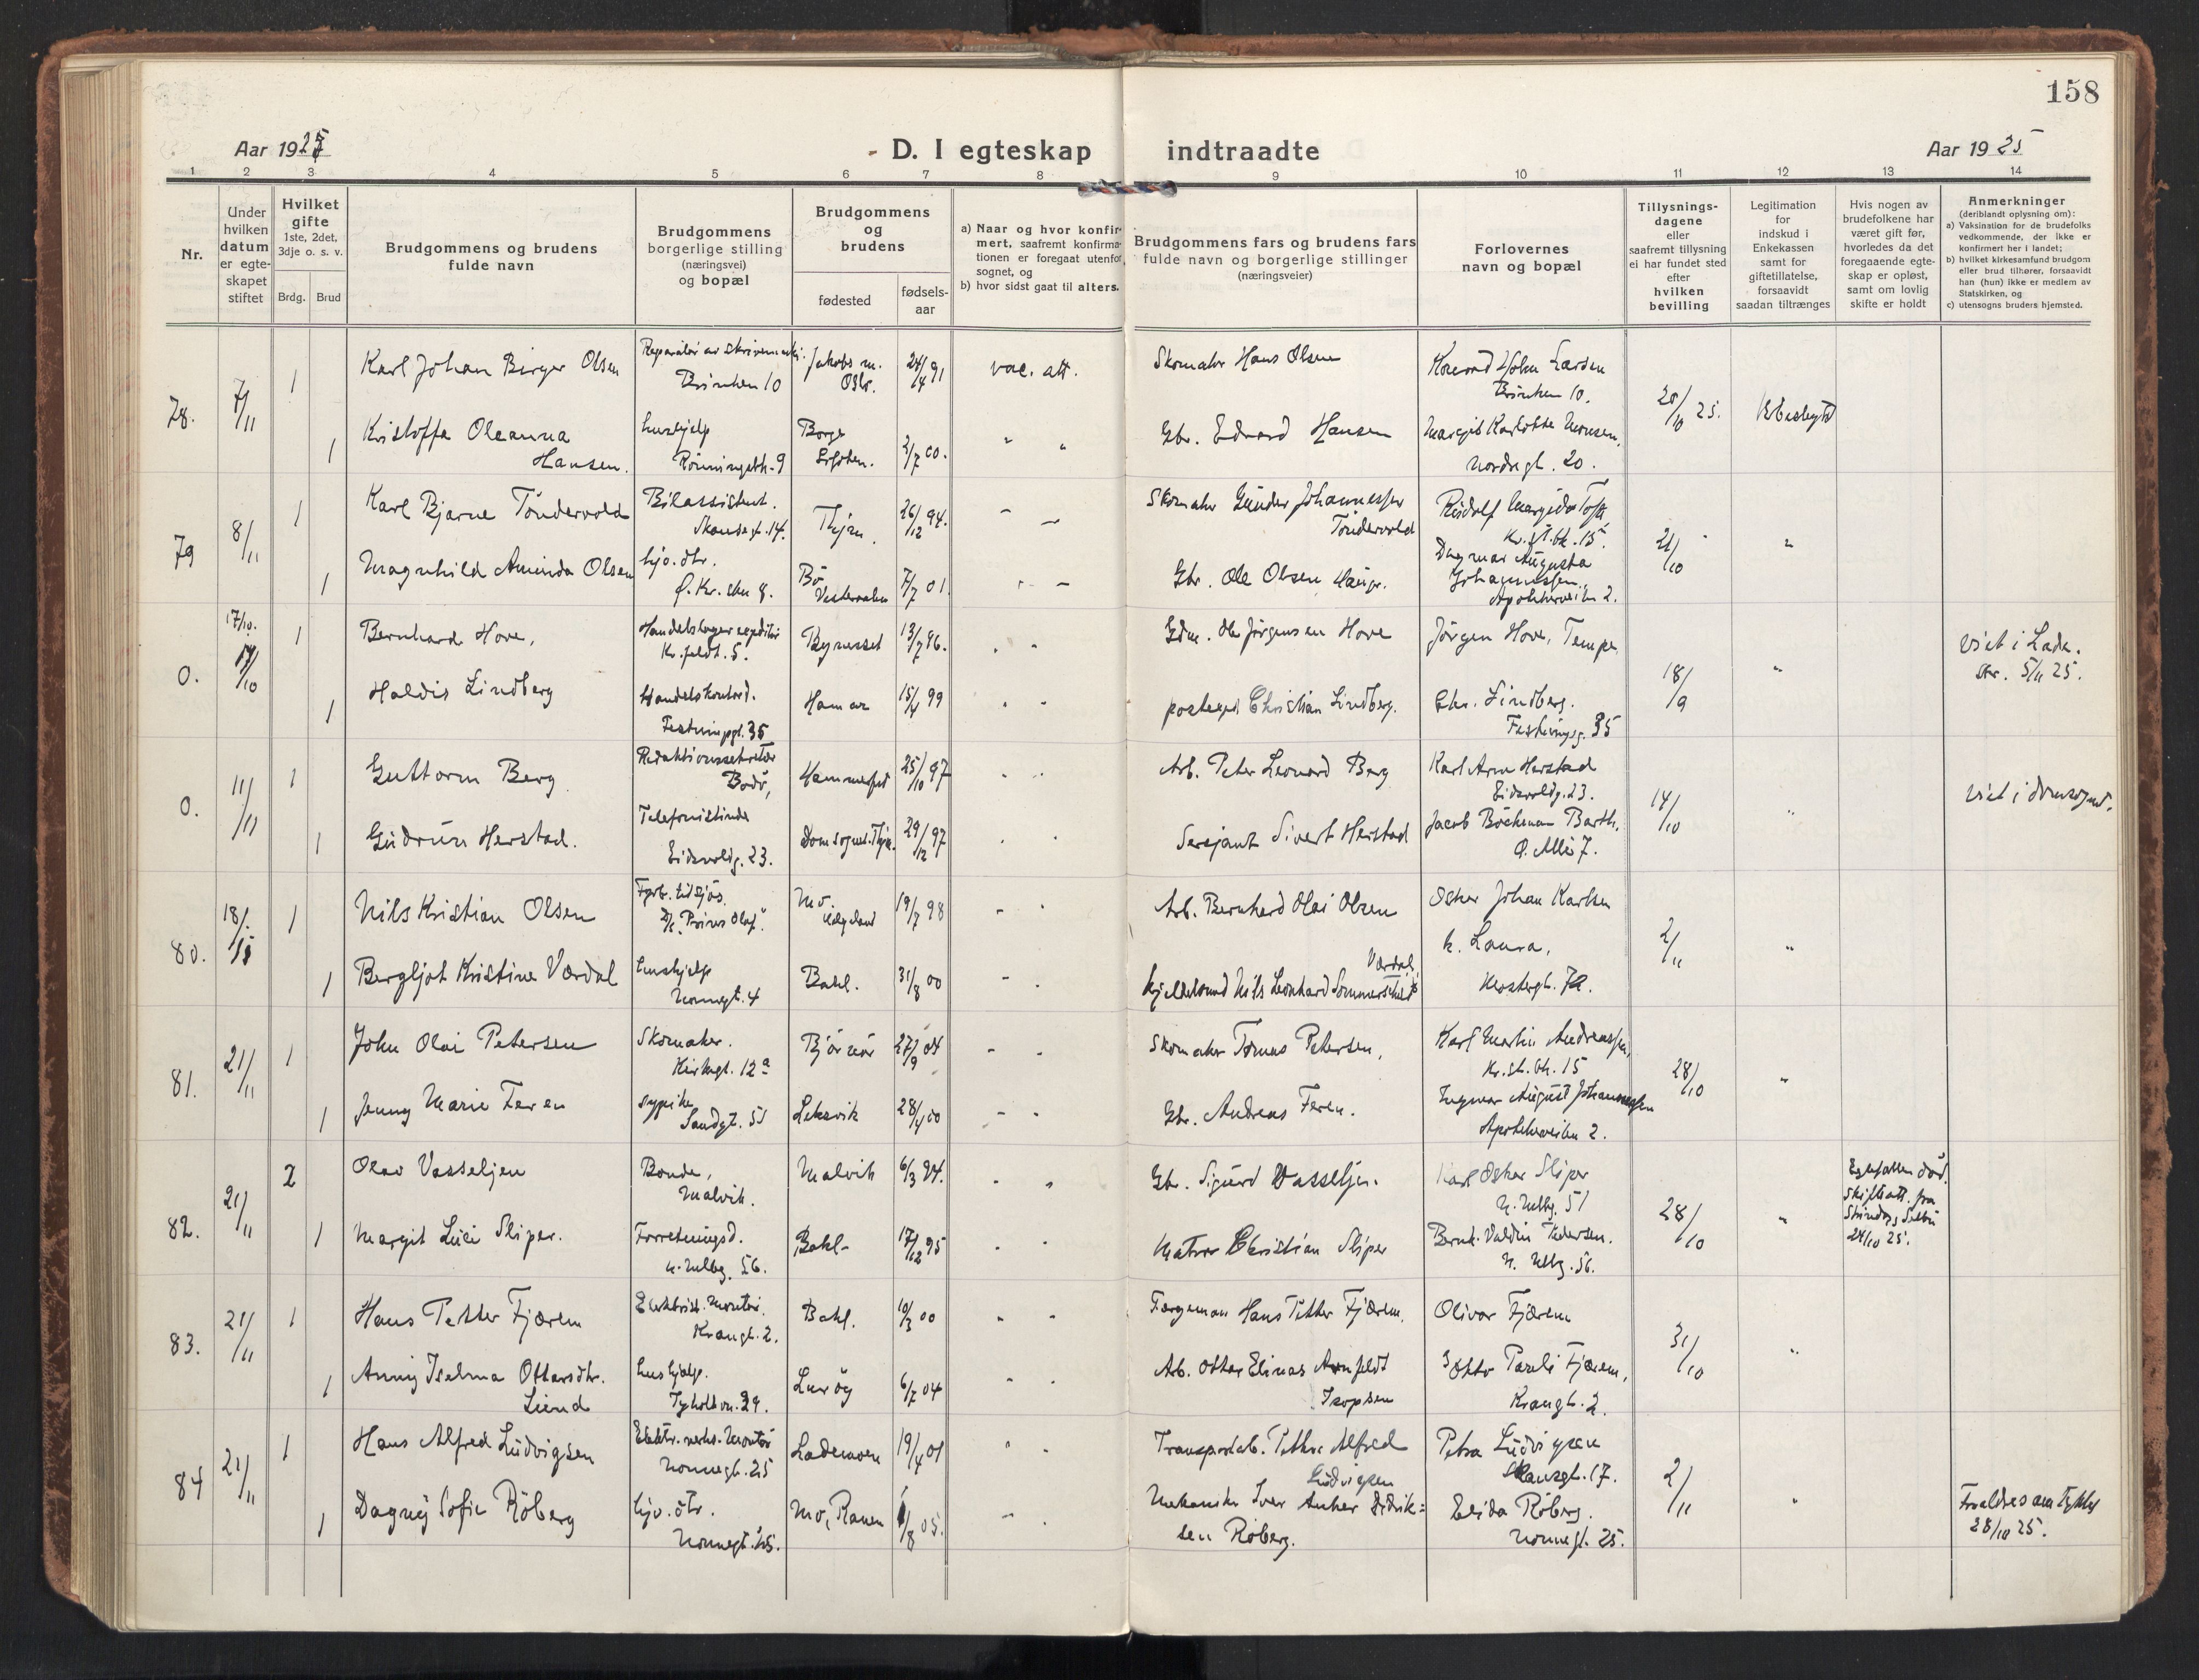 158
Aar 1925
D. I egteskap indtraadte
Aar 1925
1 2 3 4 5 6 7 8 9 10 11 12 13 14
Nr.
Under
hvilken
datum
er egte-
skapet
stiftet
Hvilket
gifte
1ste, 2det,
3dje o. s. v.
Brdg. Brud
Brudgommens og brudens
fulde navn
Brudgommens
borgerlige stilling
(næringsvei)
og bopæl
Brudgommens
og
brudens
fødested
fødsels-
aar
a) Naar og hvor konfir-
mert, saafremt konfirma-
tionen er foregaat utenfor
sognet, og
b) hvor sidst gaat til alters.
Brudgommens fars og brudens fars
fulde navn og borgerlige stillinger
(næringsveier)
Forlovernes
navn og bopæl
Tillysnings-
dagene
eller
saafremt tillysning
ei har fundet sted
efter
hvilken
bevilling
Legitimation
for
indskud i
Enkekassen
samt for
giftetillatelse,
forsaavidt
saadan tiltrænges
Hvis nogen av
brudefolkene har
været gift før,
hvorledes da det
foregaaende egte-
skap er opløst,
samt om lovlig
skifte er holdt
Anmerkninger
(deriblandt oplysning om):
a) Vaksination for de brudefolks
vedkommende, der ikke er
konfirmert her i landet;
b) hvilket kirkesamfund brudgom
eller brud tilhører, forsaavidt
han (hun) ikke er medlem av
Statskirken, og
c) utensogns bruders hjemsted.
78. 7/11
1 Karl Johan Birger Olsen
Brinken 10
Jakobs m.
Oslo.
24/4 91
vac. att.
Skomaker Hans Olsen
John Larsen
Brinken 10.
20/10 25.
Ubeslegtet
1 Kristoffa Oleanna
Hansen.
hushjelp
Rønningsbk. 9
Borge
Lofoten.
2/7 00.
" "
Gbr. Edvard Hansen
Margit Karlotte Monsen,
Nordregt. 20.
79 8/11
1 Karl Bjarne Tøndervold
Bilassistent.
Skansegt. 14.
Thjm.
26/12 94.
Skomaker Gunder Johannessen
Tøndervold
Kr. st. bk. 15.
21/10
"
1 Magnhild Aminda Olsen
hjv. dtr.
Ø. Kr. sten 8.
Bø
Vesteraalen
7/7 01.
Gbr. Ole Olsen
Dagmar Augusta
Johannessen,
Apothekerveiten 2.
0. 17/10.
17/10
1 Bernhard Hove,
Kr. feldt. 5.
Byneset
13/7 96.
Gdm. Ole Jörgensen Hove
Jörgen Hove, Tempe
18/9
"
Viet i Lade.
5/11 25.
1 Haldis Lindberg
Festningsgt. 35
Hamar
15/4 99
postexp. Christian Lindberg.
Chr. Lindberg.
Festningsg. 35
0. 11/11
1 Guttorm Berg
Redaktionssekretær
Bodö,
Hammerfest
25/10 97
Arb. Peter Leonard Berg
Karl Arn Herstad
Eidsvoldg. 23.
14/10
"
viet i domsognet.
1 Gudrun Herstad.
Telefonistinde
Eidsvoldg. 23.
Domsognet. Thjm.
29/12 97
Sersjant Sivert Herstad
Jacob Böckman Barth,
Ø. Allé 7.
80. 18/11
1 Nils Kristian Olsen
Fyrb. til sjøs.
D/S "Prins Olaf".
Mo.
Helgeland
19/7 98
Arb. Bernhard Olai Olsen
Oskar Johan Karlsen
2/11
"
1 Bergljot Kristine Værdal
hushjelp
Nonnegt. 4
Bakl.
31/8 00
Kjeldsmed Nils Leonhard Sommerschild
Værdal,
h. Laura,
Klostergt. 72.
81. 21/11
1 John Olai Petersen
Skomaker.
Kirkegt. 12a
Bjørnör
27/9 04
Skomaker Tomas Petersen,
Karl Martin Andreassen,
Kr. st. bk. 15
28/10
"
1 Jenny Marie Feren
sypike
Sandgt. 51
Leksvik
28/4 00
Gbr. Andreas Feren.
Ingmar August Johannessen
Apothekerveiten 2.
82. 21/11
2 Olav Vasseljen
Bonde,
Malvik.
Malvik
6/3 84.
Gbr. Sigurd Vasseljen.
Karl Oskar Sliper
N. Mølbg. 51
28/10
"
Egtefellen död.
Skifteatt. fra
24/10 25.
1 Margit Luci Sliper.
Forretningsd.
N. Mølbg. 56.
Bakl.
17/12 95
Matros Christian Sliper
Bernh. Valdin Pedersen.
N. Mølbg. 56.
83. 21/11
1 Hans Petter Fjærem
Elektrisk. Montör.
Krangt. 2.
Bakl.
10/3 00
Færgeman Hans Petter Fjærem.
Olivar Fjærem
31/10
"
1 Anny Iselma Ottarsdtr.
Lund
hushjelp.
Tyholtvn. 29.
Lurøy
6/7 04
Arb. Ottar Elinas Arnfeldt
Isopsen
Otto Pauli Fjærem,
Krangt. 2.
84 21/11
1 Hans Alfred Ludvigsen
Elektr. verks. Montör
Nonnegt. 25
Lademoen
19/4 01
Transportarb. Petter Alfred
Ludvigsen
Petra Ludvigsen
Skansegt. 17.
2/11
"
Forældres samtykke
28/10 25.
1 Dagny Sofie Röberg
hjv. dtr.
Nonnegt. 25.
Mo, Ranen
1/8 05.
Mekaniker Iver Anker Didrik-
sen Röberg.
Elida Röberg.
Nonnegt. 25.